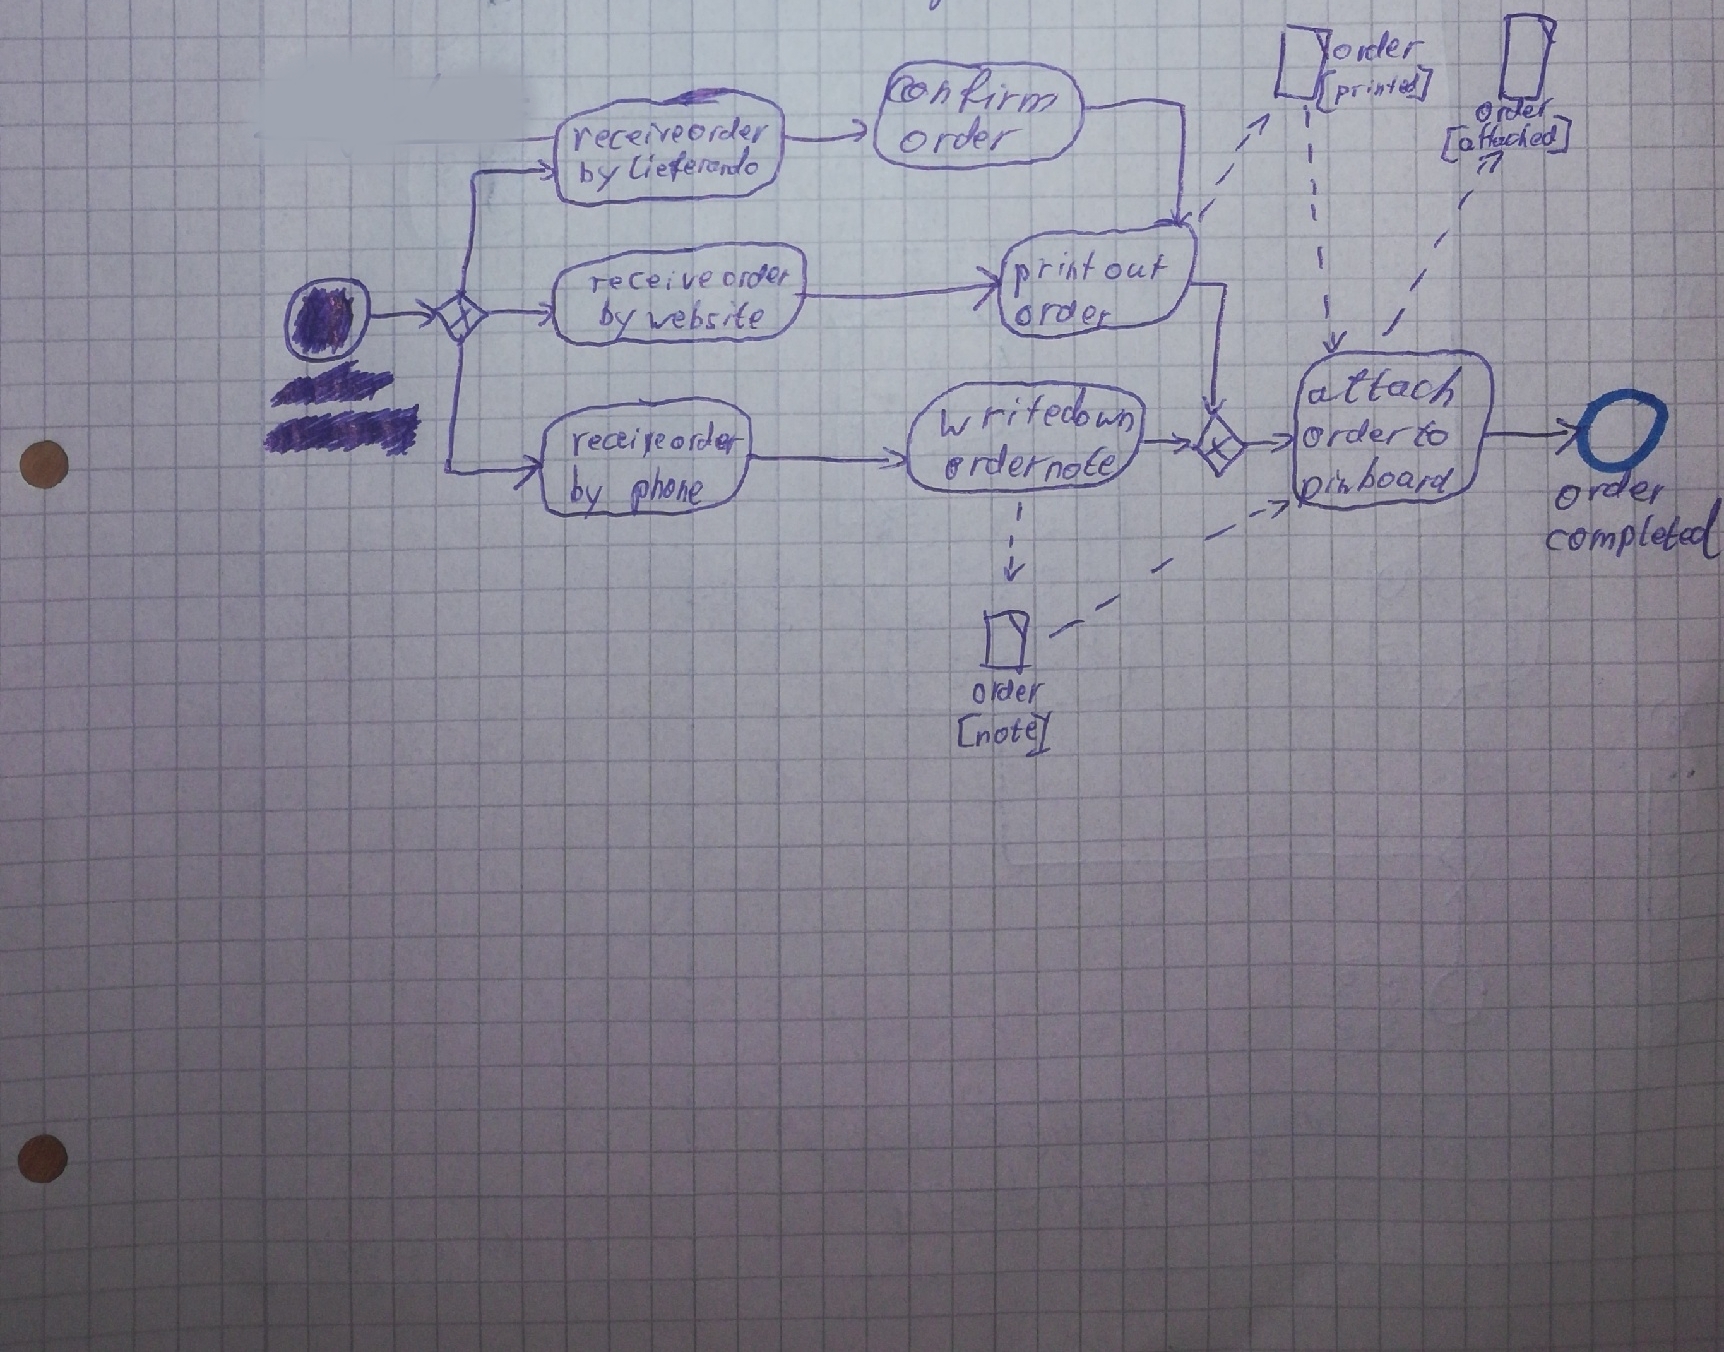 receive order
by Lieferando
confirm
order
order
[printed]
order
[attached]
receive order
by website
print out
order
receive order
by phone
write down
order note
attach
order to
pinboard
order
completed
order
[note]